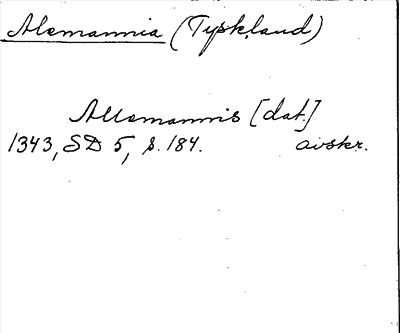 Alemannia (Tyskland)
Allemannis [dat.]
1343, SD 5, s. 184. avskr.